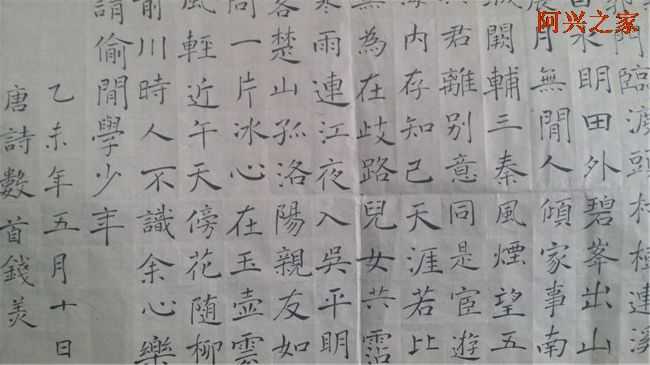 阿兴之家
門臨渡頭村樹連溪
水明田外碧峯出山
月無閒人傾家事南
城闕輔三秦風煙望五
君離別意同是宦遊
海內存知己天涯若比
無為在歧路兒女共霑
寒雨連江夜入吳平明
客楚山孤洛陽親友如
一片冰心在玉壺雲
風輕近午天傍花隨柳
前川時人不識余心樂
謂偷閒學少年
乙未年五月十日
唐詩數首錢美